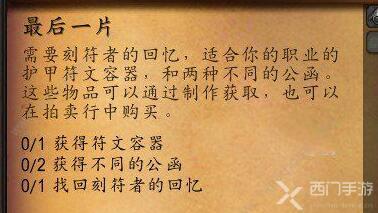 最后一片
需要刻符者的回忆，适合你的职业的
护甲符文容器，和两种不同的公函。
这些物品可以通过制作获取，也可以
在拍卖行中购买。
0/1 获得符文容器
0/2 获得不同的公函
0/1 找回刻符者的回忆
西门手游